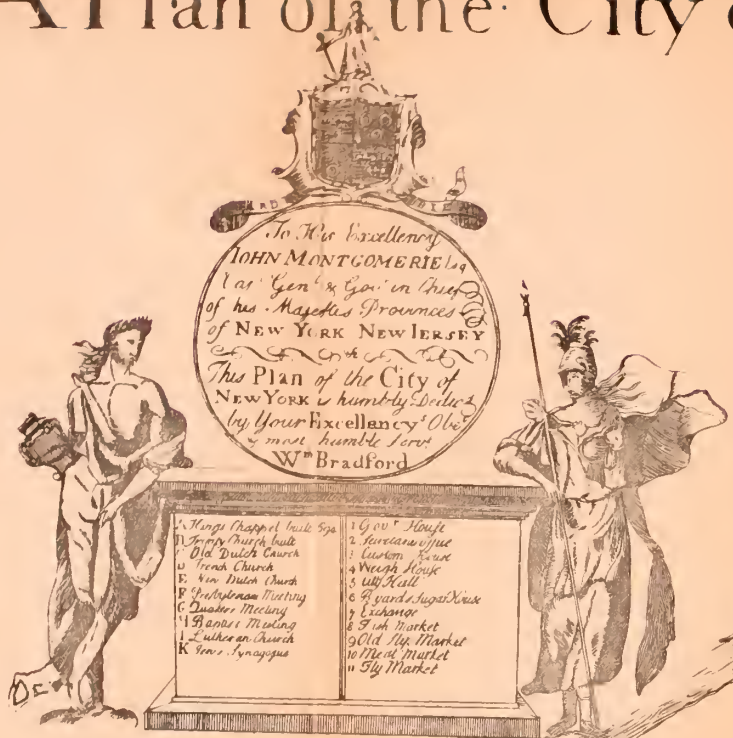 A Plan of the City
To His Excellency
IOHN MONTGOMERIE Esq
Cap^t Gen^l & Gov^r in Chief
of his Majesties Provinces
of NEW YORK NEW IERSEY
This Plan of the City of
NEW YORK is humbly Dedic^d
by Your Excellency^s Obe^t
& most humble Serv^t
W^m Bradford
A Kings Chappel built
B Trinity Church built
C Old Dutch Church
D French Church
E New Dutch Church
F Presbyterian Meeting
G Quakers Meeting
H Baptist Meeting
I Lutheran Church
K Jews Synagogue
1 Gov^r House
2 Secretarys
3 Custom House
4 Weigh House
5 Hall
6 Byards Sugar House
7 Exchange
8 Fish Market
9 Old Sly Market
10 Meal Market
11 Fly Market